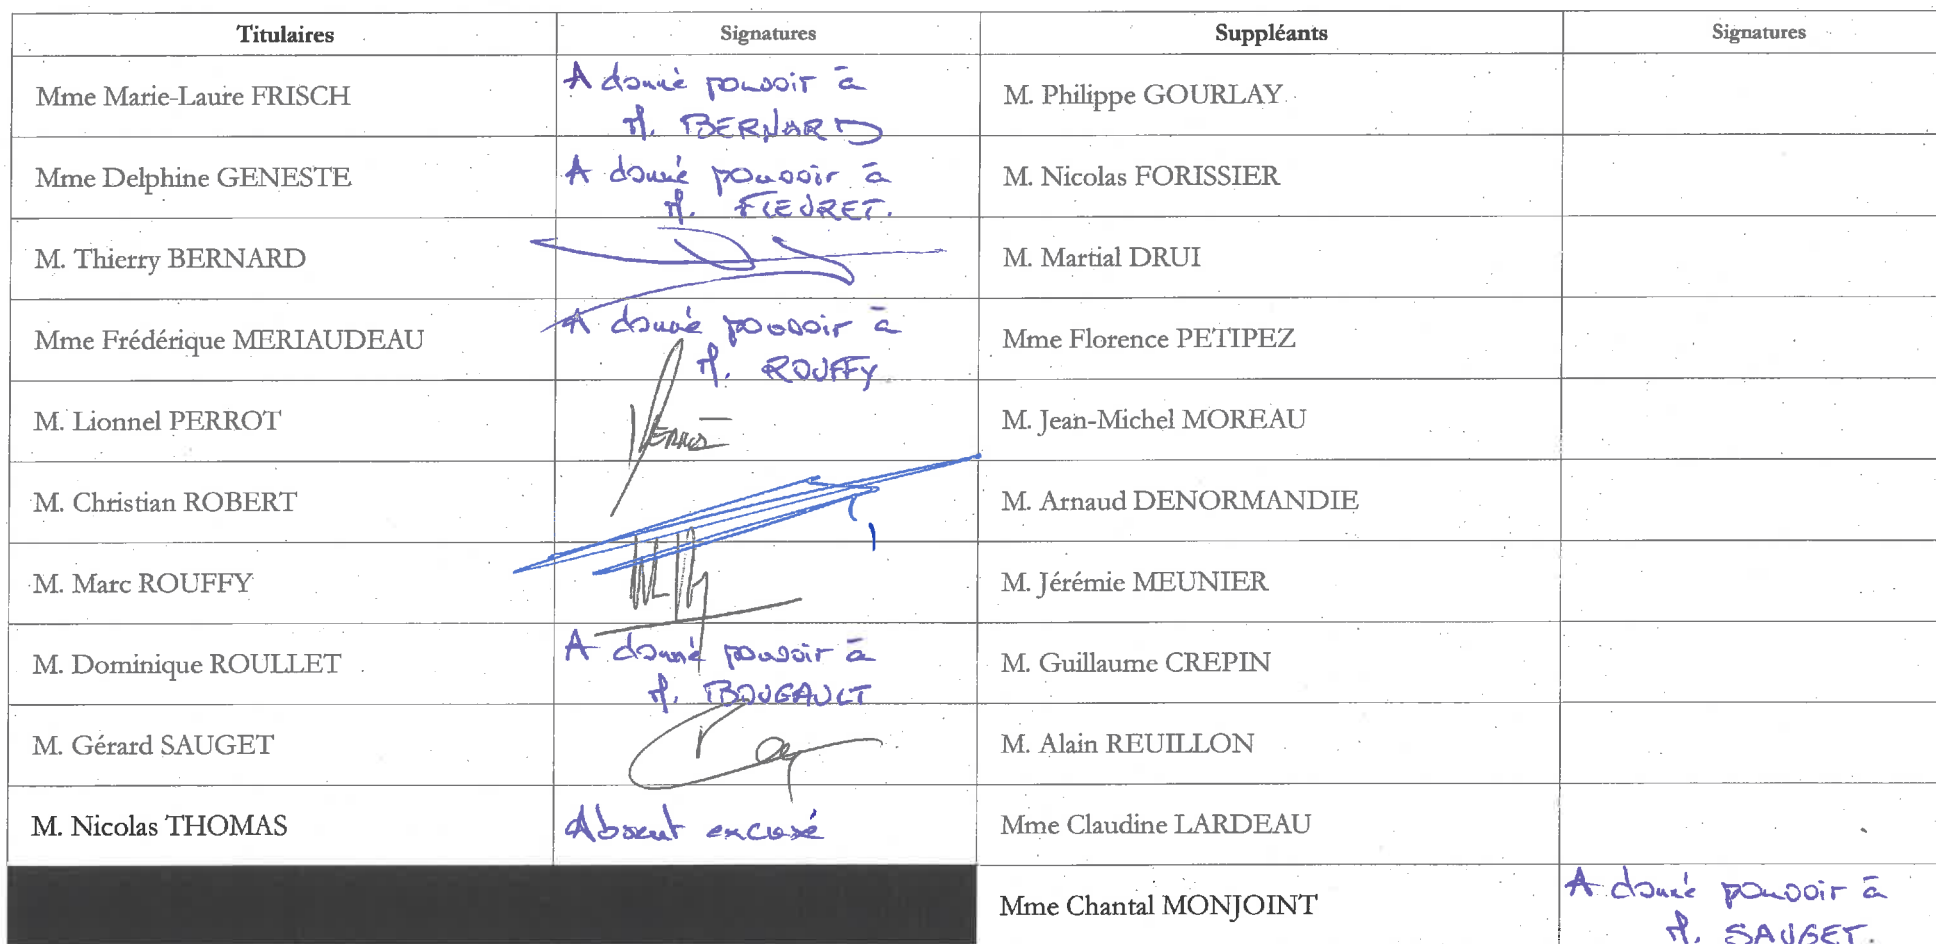 Titulaires Signatures Suppléants Signatures
Mme Marie-Laure FRISCH A donné pouvoir à M. Philippe GOURLAY
M. BERNARD
Mme Delphine GENESTE A donné pouvoir à M. Nicolas FORISSIER
M. FLEURET.
M. Thierry BERNARD M. Martial DRUI
Mme Frédérique MERIAUDEAU A donné pouvoir à Mme Florence PETIPEZ
M. ROUFFY
M. Lionnel PERROT M. Jean-Michel MOREAU
M. Christian ROBERT M. Arnaud DENORMANDIE
M. Marc ROUFFY M. Jérémie MEUNIER
M. Dominique ROULLET A donné pouvoir à M. Guillaume CREPIN
M. BOUGAULT
M. Gérard SAUGET M. Alain REUILLON
M. Nicolas THOMAS Absent excusé Mme Claudine LARDEAU
Mme Chantal MONJOINT A donné pouvoir à
M. SAUGET.